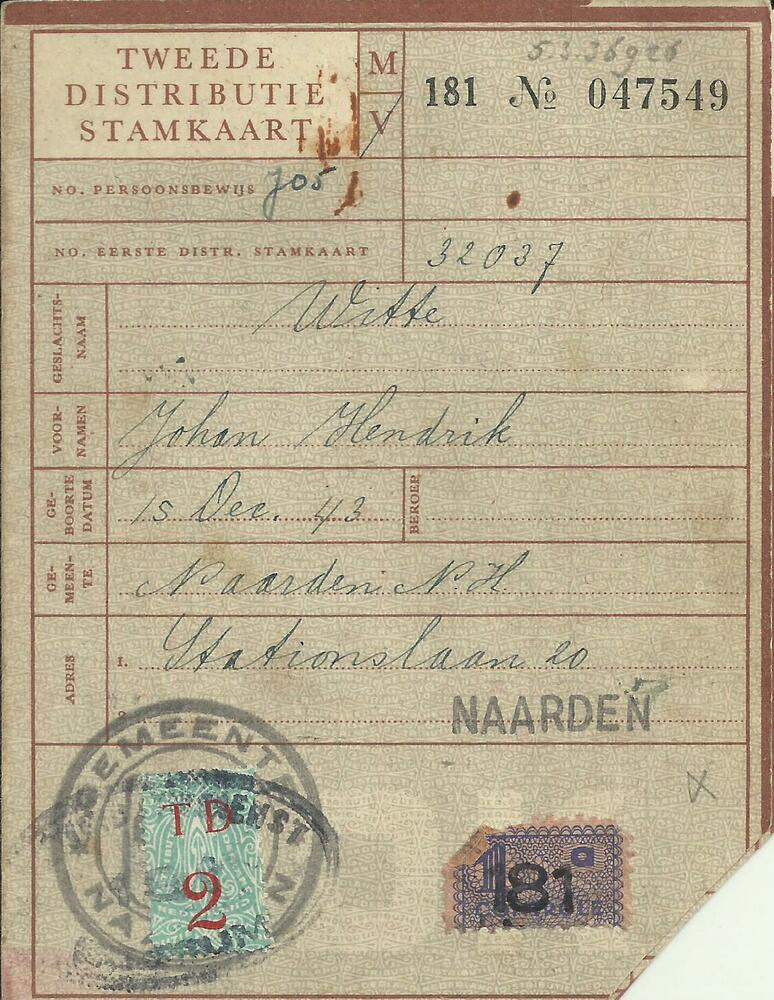 TWEEDE
DISTRIBUTIE
STAMKAART
M
V
181 № 047549
NO. PERSOONSBEWIJS J05
NO. EERSTE DISTR. STAMKAART 32037
GESLACHTS-
NAAM
Witte
VOOR-
NAMEN
Johan Hendrik
GE-
BOORTE
DATUM
15 Dec. 43
BEROEP
GE-
MEEN-
TE
Naarden N.H
ADRES
1. Stationslaan 20
2.
NAARDEN
GEMEENTE
NAARDEN
TD
2
181